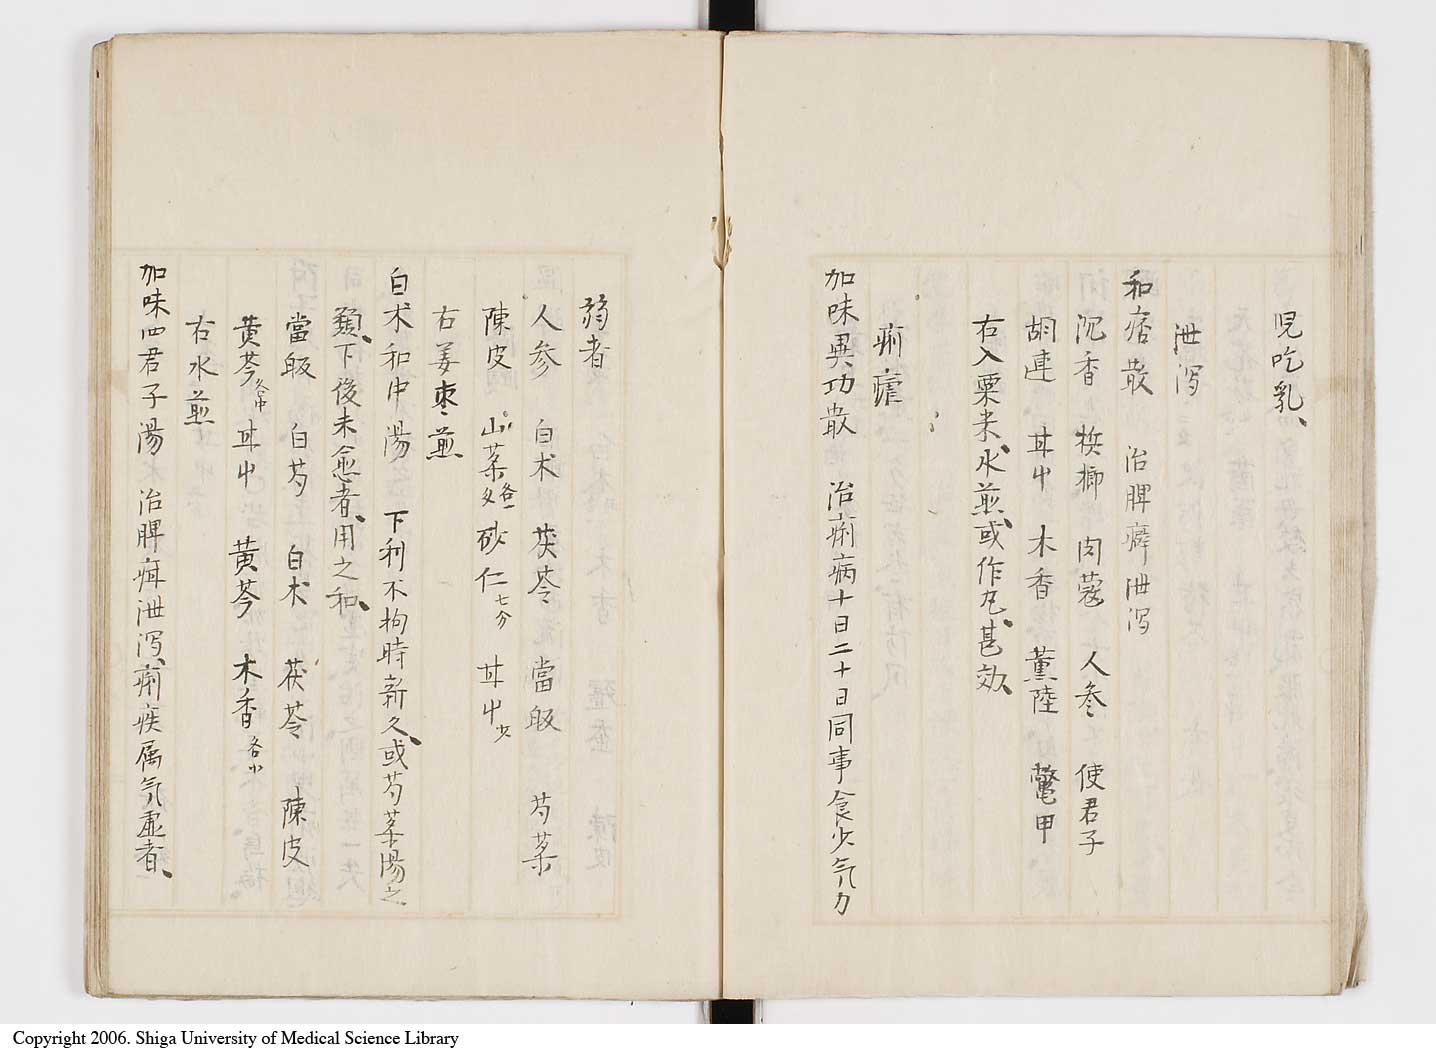 児吃乳、
泄瀉
和痞散　治脾癖泄瀉
沉香　梹榔　肉蔲　人参　使君子
胡連　甘中　木香　薫陸　鼈甲
右入粟米、水煎、或作丸、甚効、
痢瘧
加味異功散　治痢病十日二十日同事食少気力
弱者
人参　白朮　茯苓　當皈　芍薬
陳皮　山薬各一匁　砂仁七分　甘中少
右姜枣煎
白朮和中湯　下利不拘時新久、或芍薬湯之
類、下後未愈者、用之和、
當皈　白芍　白朮　茯苓　陳皮
黄芩各中　甘中　黄芩　木香各少
右水煎
加味四君子湯　治脾疳泄瀉、痢疾属気虚者、
Copyright 2006. Shiga University of Medical Science Library